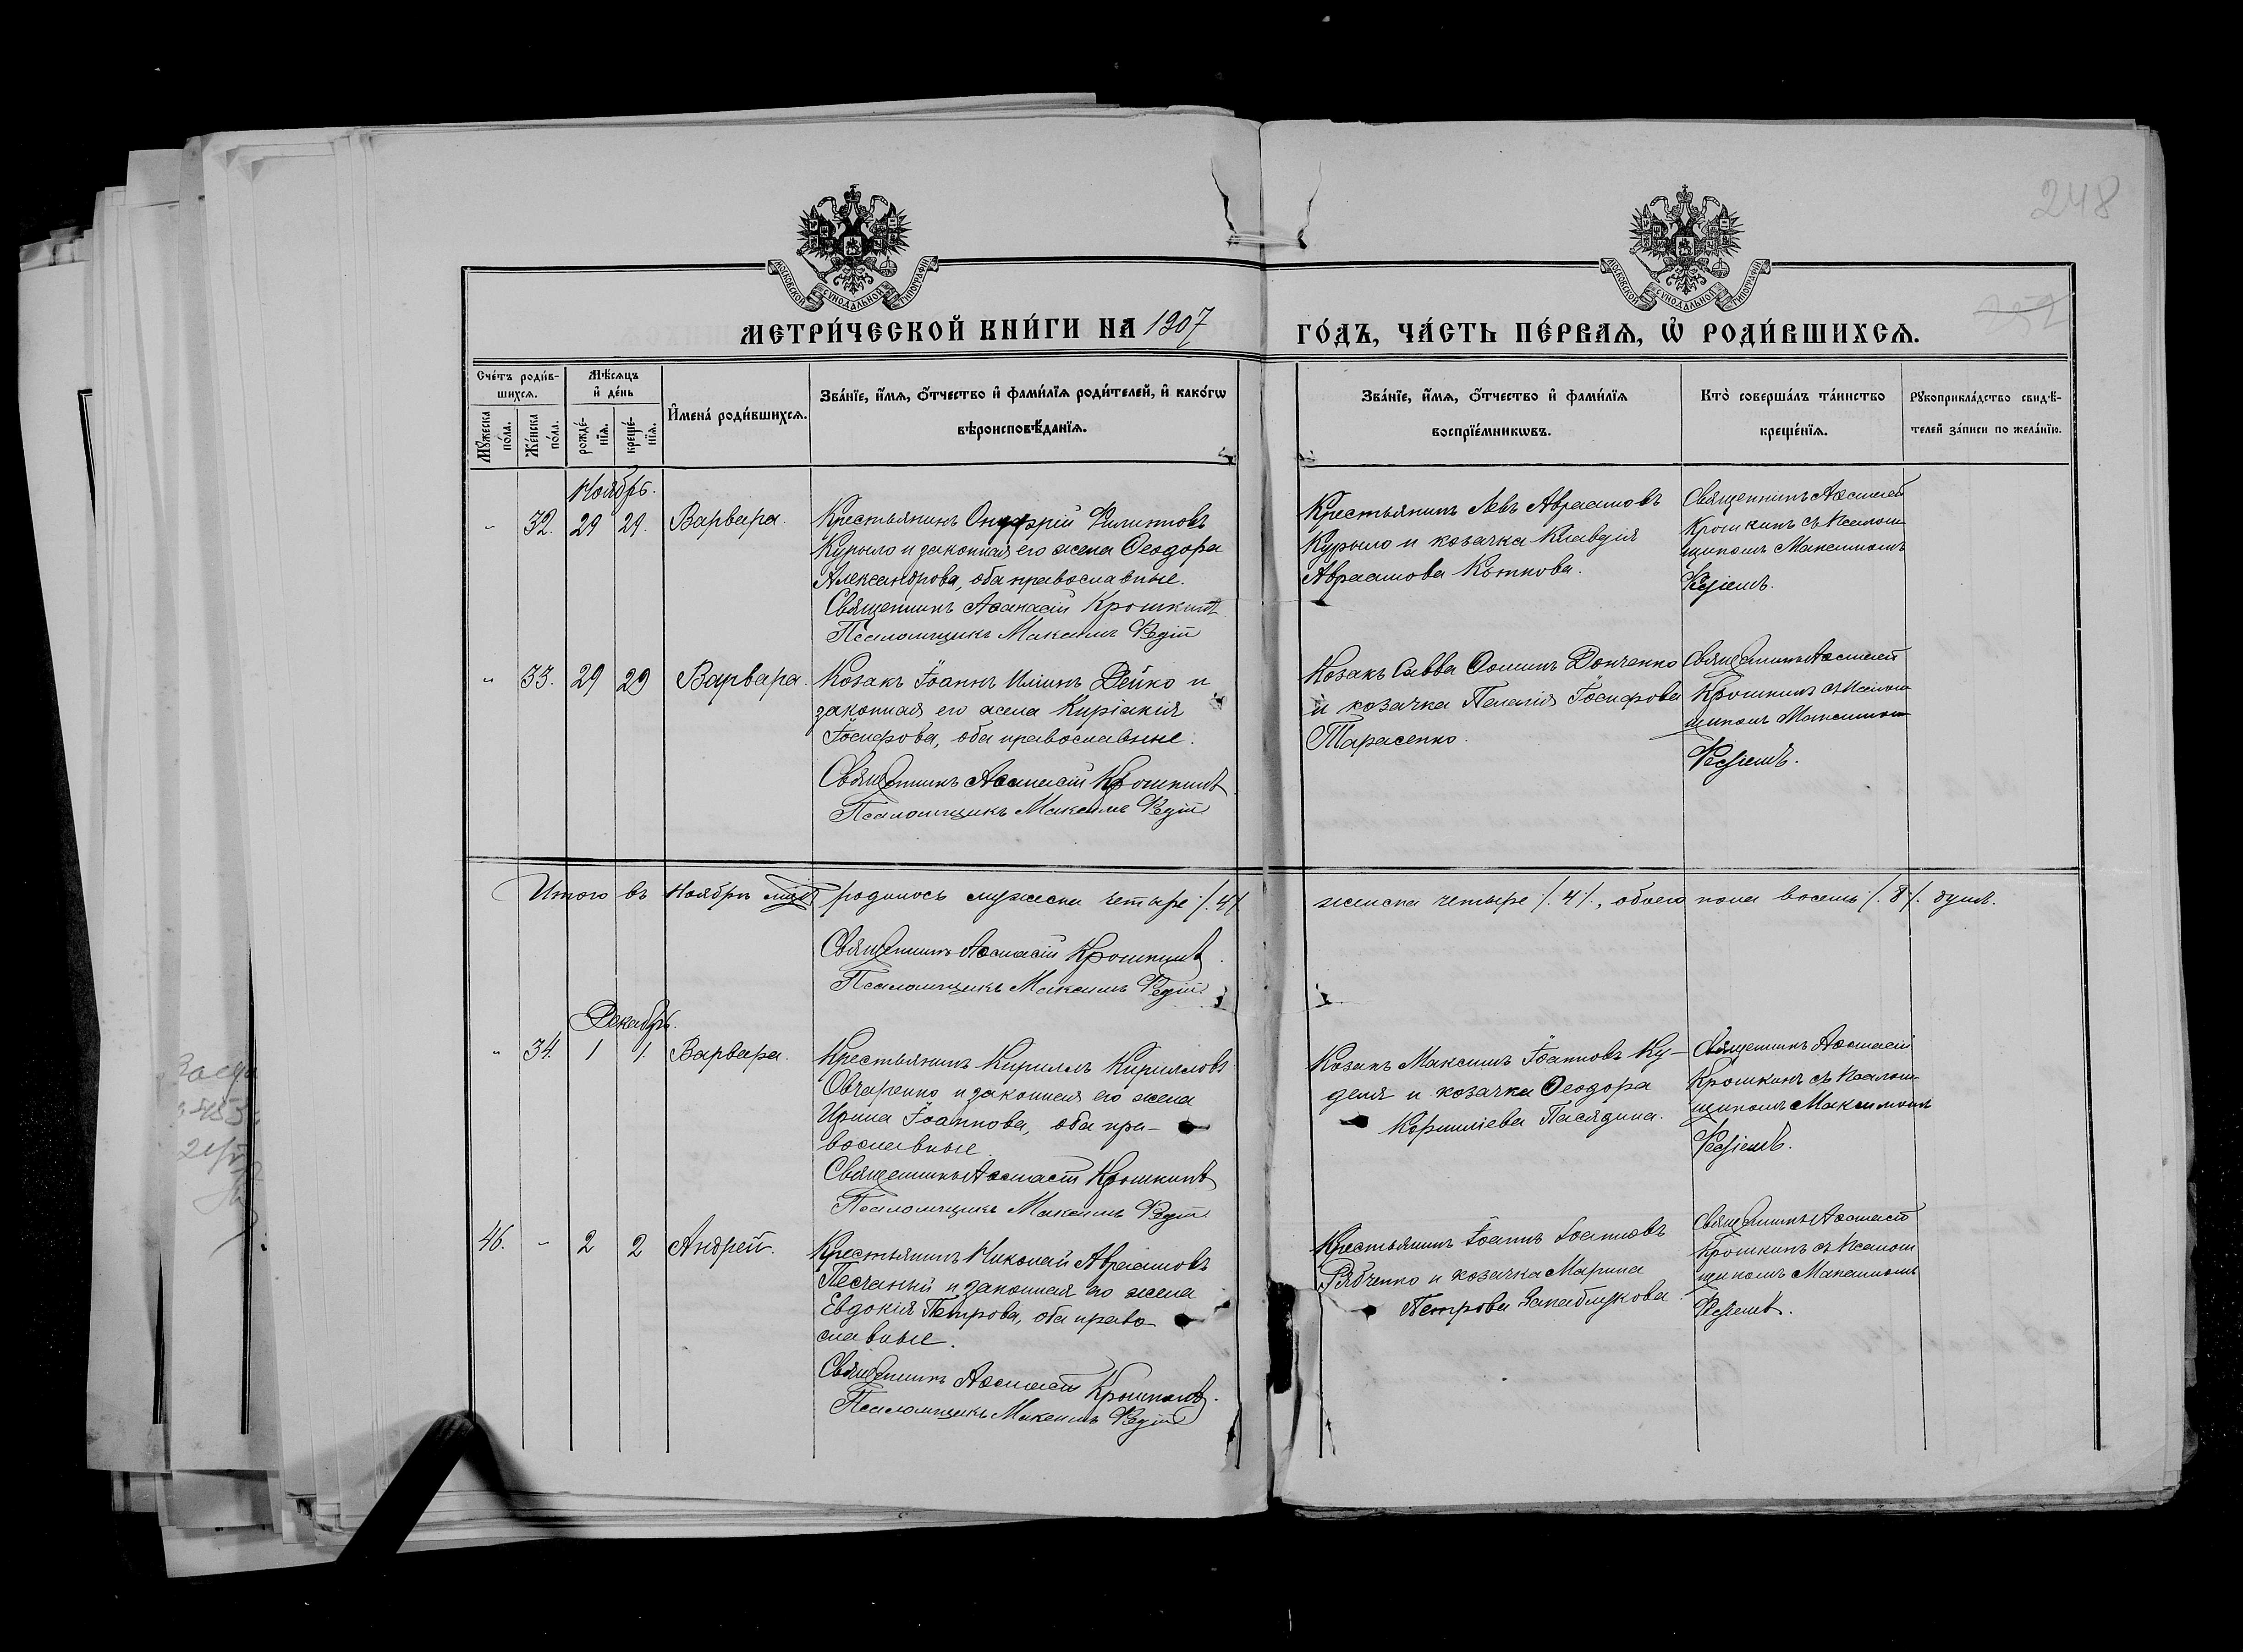 248
МОСКОВСКОЙ СѴНОДАЛЬНОЙ ТИПОГРАФІИ
МОСКОВСКОЙ СѴНОДАЛЬНОЙ ТИПОГРАФІИ
МЕТРИ́ЧЕСКОЙ КНИ́ГИ НА 1907
ГО́ДЪ, ЧА́СТЬ ПЕ́РВАѦ, Ѡ҆ РОДИ́ВШИХСѦ.
Сче́тъ роди́в-
шихсѧ.
Мꙋ́жеска по́ла.
Же́нска по́ла.
Мѣ́сѧцъ
и҆ де́нь
рожде́-
нїѧ.
креще́-
нїѧ.
И҆мена̀ роди́вшихсѧ.
Зва́нїе, и҆́мѧ, о҆́тчество и҆ фами́лїѧ роди́телей, и҆ како́гѡ
вѣроисповѣ́данїѧ.
Зва́нїе, и҆́мѧ, о҆́тчество и҆ фами́лїѧ
воспрїе́мникѡвъ.
Кто̀ соверша́лъ та́инство
креще́нїѧ.
Рꙋкоприкла́дство свидѣ́-
телей за́писи по жела́нїю.
Ноябрь.
" 32. 29 29. Варвара.
Крестьянинъ Онуфрій Филиповъ
Курыло и законная его жена Ѳеодора
Александрова, оба православные.
Священникъ Аѳанасій Крошкинъ
Псаломщикъ Максимъ Редій
Крестьянинъ Левъ Авраамовъ
Курыло и козачка Клавдія
Авраамова Коткова.
Священникъ Аѳанасій
Крошкинъ съ Псалом-
щикомъ Максимомъ
Редіемъ.
" 33. 29 29 Варвара.
Козакъ Іоаннъ Иліинъ Дейко и
законная его жена Киріакія
Іосифова, оба православные.
Священникъ Аѳанасій Крошкинъ
Псаломщикъ Максимъ Редій
Козакъ Савва Ѳоминъ Донченко
и козачка Пелагія Іосифова
Тарасенко.
Священникъ Аѳанасій
Крошкинъ съ Псалом-
щикомъ Максимомъ
Редіемъ.
Итого въ Ноябрѣ мцѣ родилось мужеска четыре /.4/.
женска четыре /.4/., обоего пола восемь /.8/. душъ.
Священникъ Аѳанасій Крошкинъ.
Псаломщикъ Максимъ Редій
Декабрь.
" 34. 1 1. Варвара.
Крестьянинъ Кириллъ Кирилловъ
Овчаренко и законная его жена
Ирина Іоаннова, оба пра-
вославные.
Священникъ Аѳанасій Крошкинъ
Псаломщикъ Максимъ Редій
Козакъ Максимъ Іоанновъ Ку-
деля и козачка Ѳеодора
Корниліева Пасядина.
Священникъ Аѳанасій
Крошкинъ съ Псалом-
щикомъ Максимомъ
Редіемъ.
46. - 2 2 Андрей.
Крестьянинъ Николай Авраамовъ
Песчаный и законная его жена
Евдокія Петрова, оба право
славные.
Священникъ Аѳанасій Крошкинъ.
Псаломщикъ Максимъ Редій
Крестьянинъ Іоаннъ Іоанновъ
Рябченко и козачка Марина
Петрова
Священникъ Аѳанасій
Крошкинъ съ Псалом
щикомъ Максимомъ
Редіемъ.